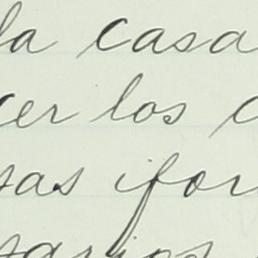 la casa
cer los
sas for
sarios